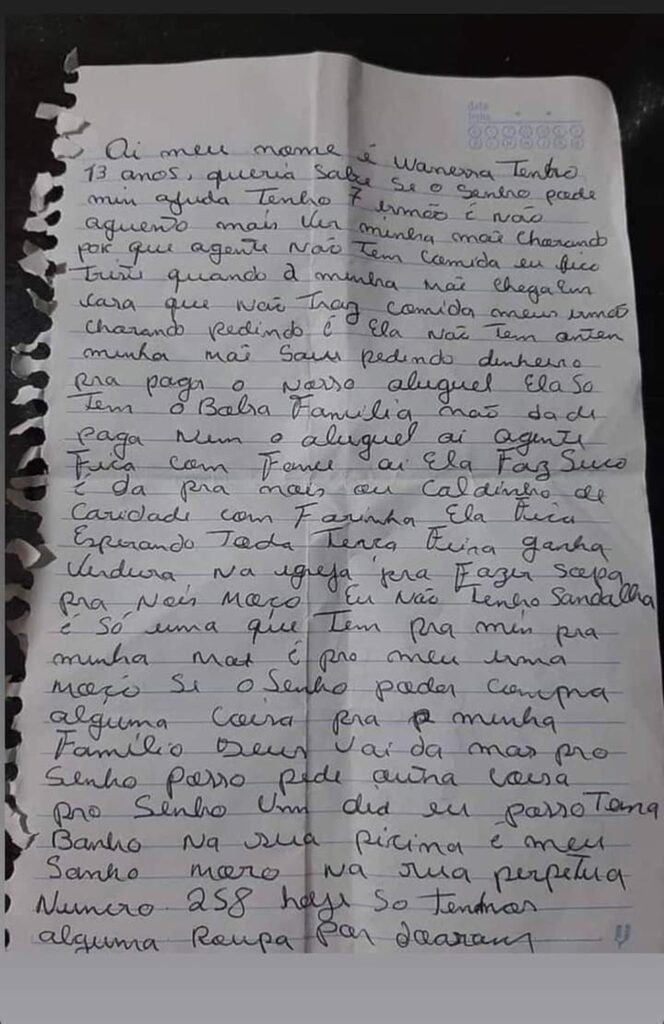 data
Ai meu nome é Wanessa Tenho
13 anos, queria sabe se o senho pode
min ajuda Tenho 7 irmão é não
aguento mais ver minha mãe charando
por que agente não Tem comida eu fico
triti quando a minha mãe chega em
casa que não Traz comida meus irmão
charando pedindo é Ela não tem onten
minha mãe saiu pedindo dinheiro
pra paga o nosso aluguel Ela so
Tem o Bolsa Familia não da de
paga nem o aluguel ai agente
Fica com Fome ai Ela Faz Suco
é da pra nois ou caldinho de
Caridade com Farinha Ela Fica
Esperando Toda Terça Feira ganha
Verdura na igreja pra Fazer sopa
pra nois moço Eu não Tenho Sandalha
é só uma que Tem pra min pra
minha mae é pro meu irma
moço se o Senho poder compra
alguma coisa pra minha
Familio Deus vai da mas pro
Senho posso pede outra coisa
pro Senho Um dia eu posso Toma
Banho na sua picina é meu
Sonho moro na rua perpetua
Numero 258 hoje so temos
alguma Roupa por doaram